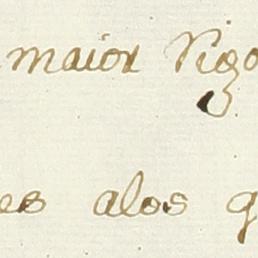 maior Rigo
es alos q